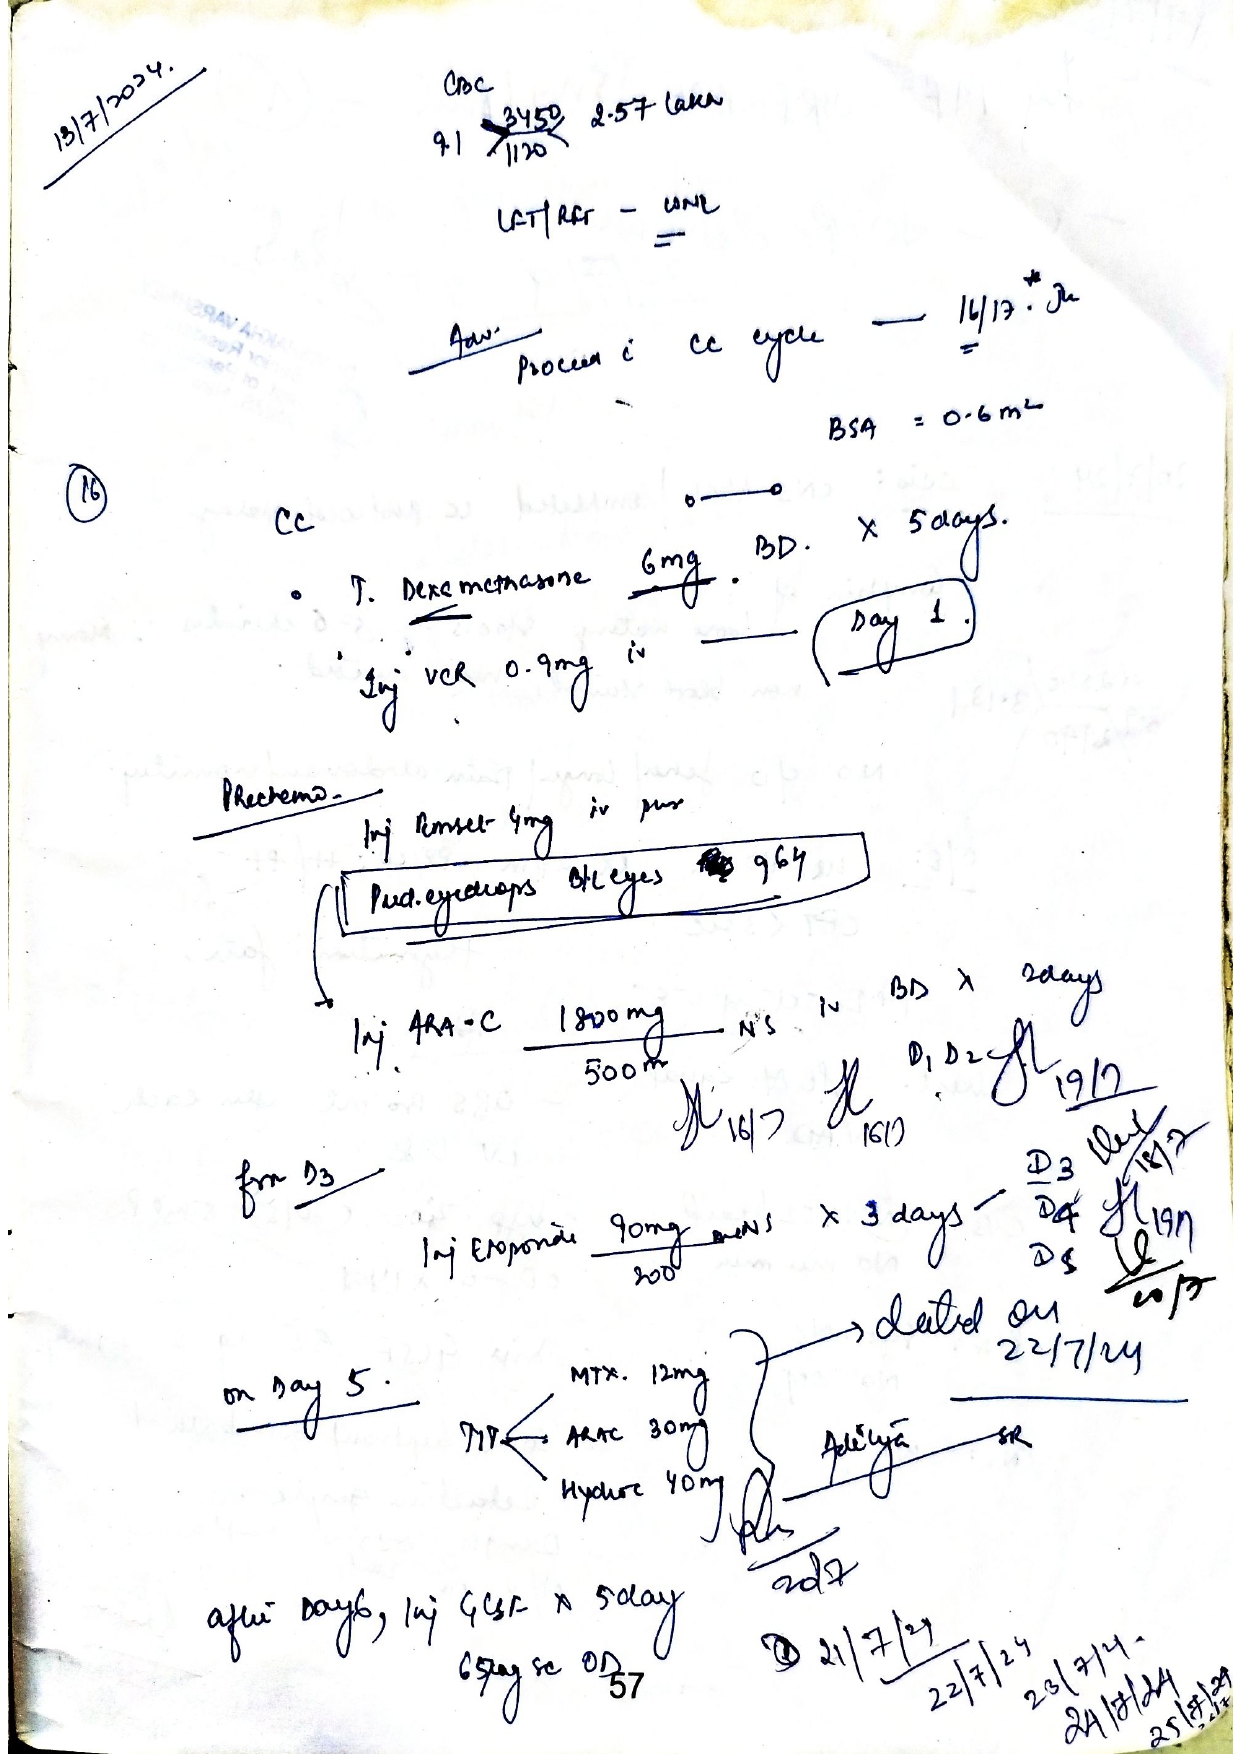 13/7/2024.
CBC
9.1 3450 2.57 Lakh
1120
LFT/RFT - WNL
Adv.
Proceed c̄ CC cycle — 16/17
BSA = 0.6 m²
16
CC
• T. Dexamethasone 6mg. BD. x 5 days.
• Inj VCR 0.9mg iv — Day 1.
Prechemo.
Inj Emset 4mg iv
Pred. eyedrops B/L eyes q6H
Inj ARA-C 1800mg NS iv BD x 2days
500
D1 D2 19/7
16/7 16/7
from D3
D3 18/7
Inj Etoposide 90mg NS x 3 days - D4 19/7
200
D5 20/7
on Day 5.
dated on
22/7/24
TIT MTX. 12mg
ARAC 30mg
Hydroc 40mg
SR
after Day6, Inj GCSF x 5day
sc OD
57
21/7/24
22/7/24
23/7/24
24/7/24
25/7/24